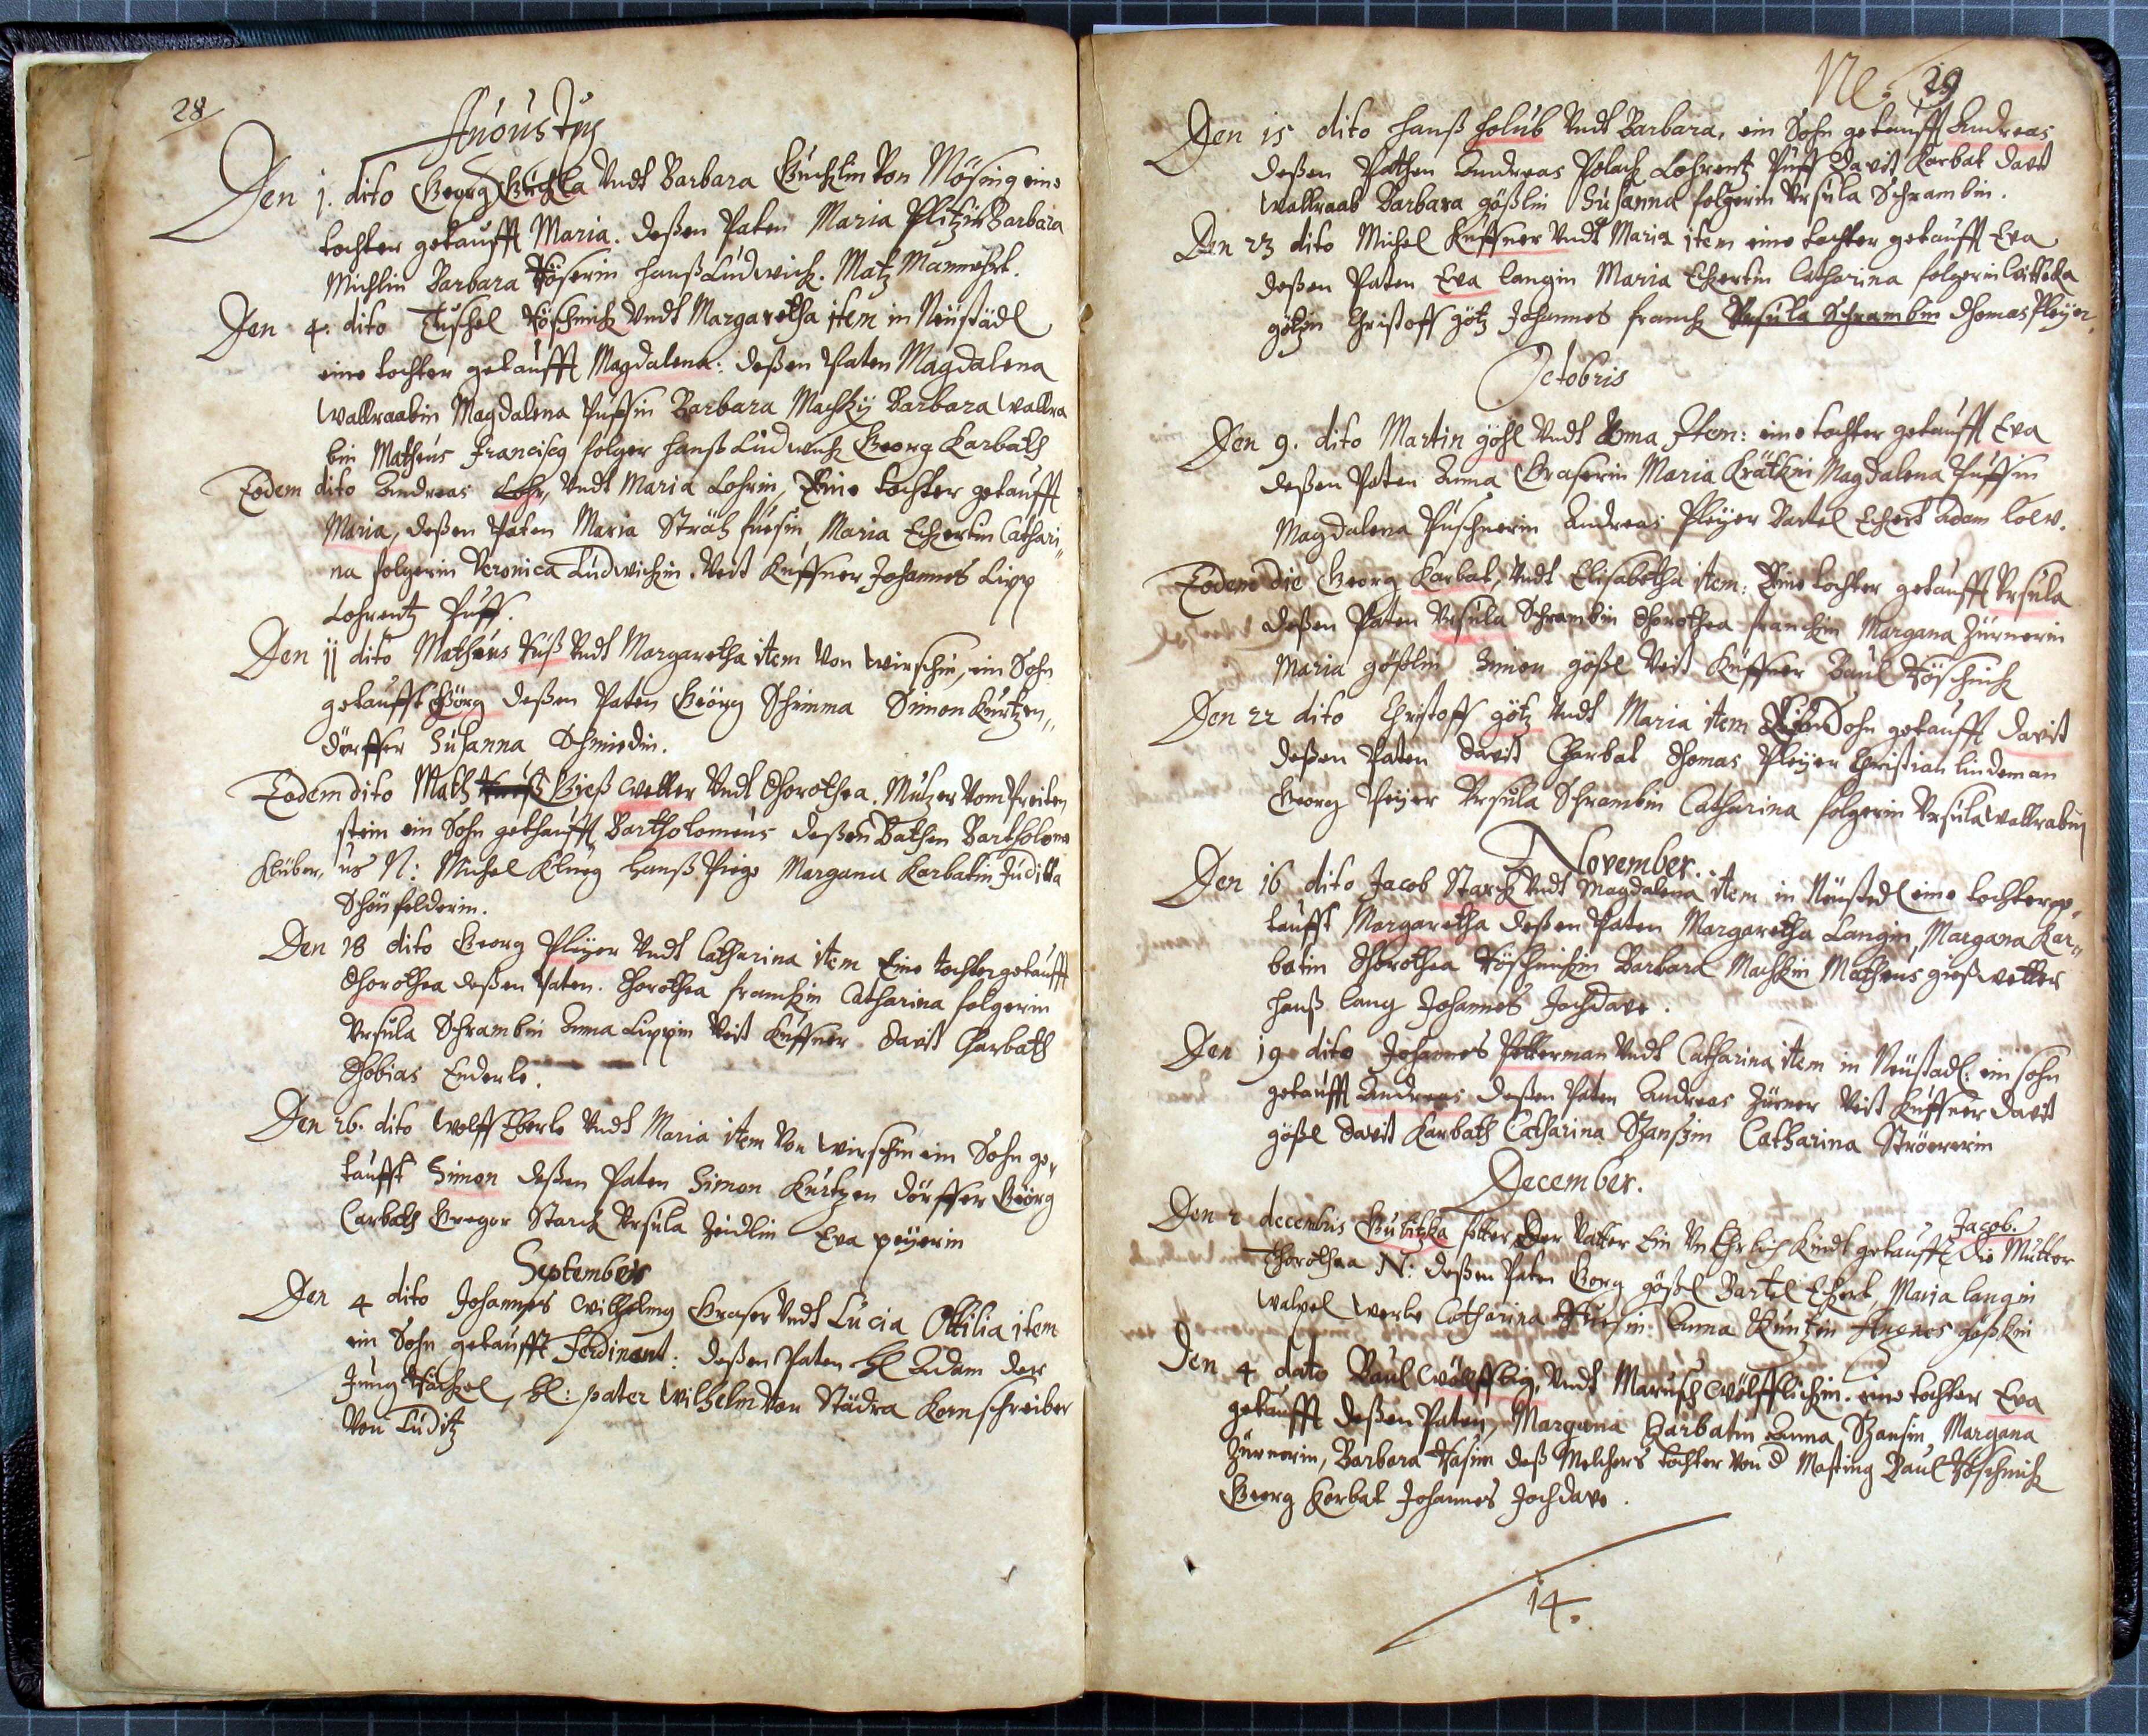 28
Augustus
Den 1. dito Georg Guchla Undt Barbara Guchlin Von Mösing eine
tochter getaufft Maria. deßen Paten Maria Plitzin Barbara
Michlin Barbara Höserin hanß Ludwich. Matz
Den 4. dito Tuschel Höschnich Undt Margaretha item in Neüstädl
eine tochter getaufft Magdalena: deßen Paten Magdalena
Wallraabin Magdalena Pußin Barbara Machky Barbara Wallra
bin Matheus Franciscg folger hanß Ludwich Georg Karbath
Eodem dito Andreas Lohr, Undt Maria Lohrin, Eine tochter getaufft
Maria, deßen Paten Maria Maria Eckertin Cathari„
na folgerin Veronica Ludwichin. Veit Kuffner Johannes Lipp
Lohrentz Puff.
Den 11 dito Matheus Fuß Undt Margaretha item Von Wirschin, ein Sohn
getaufft Görg deßen Paten Geörg Schimma Simon Kurtzen„
dörffer Susanna Schmiedin.
Eodem dito Math Gieß Wetter Undt Dorothea. Mutzer Vom Preiten
stein ein Sohn gethaufft Bartholomeus deßen Bathen Bartholome
Klüber, us N: Michel Klueg hanß Margana Karbatin Juditta
Schönfelderin.
Den 18 dito Georg Pleyer Undt Catharina item Eine tochter getaufft
Dorothea deßen Paten. Dorothea franckin Catharina folgerin
Ursula Schrambin Anna Lippin Veit Kuffner Davit Charbath
Thobias Enderle.
Den 26. dito Wolff Eberle Undt Maria item Von Wirschin ein Sohn ge„
taufft Simon deßen Paten Simon Kurtzen dörffer Geörg
Carbath Gregor Starck Ursula Zeidlin Eva peyerin
Septembris
Den 4 dito Johannes Wilhelmg Graser Undt Lucia Ottilia item
ein Sohn getaufft Ferdinant: deßen Paten H Adam der
Jung Häckel, H: pater Wilhelm Von Städra Kornschreiber
Von Luditz
29
Den 15 dito hanß holub Undt Barbara, ein Sohn getaufft Andreas
deßen Pathen Andreas Polack Lohrentz Puff Davit Karbat Davit
Wallraab Barbara gößlin Susanna folgerin Ursula Schrambin.
Den 23 dito Michel Kuffner Undt Maria item eine tochter getaufft Eva
deßen Paten Eva langin Maria Eckertin Catharina folgerin
götzin Christoff götz Johannes franck Ursula Schrambin Thomas Pleyer.
Octobris
Den 9. dito Martin göhl Undt Anna Item: eine tochter getaufft Eva
deßen Paten Anna Graserin Maria Krätkin Magdalena Puffin
Magdalena Puschnerin Andreas Pleyer Bartel Eckert Adam löw.
Eodem die Georg Karbat, Undt Elisabetha item: Eine tochter getaufft Ursula
deßen Paten Ursula Schrambin Dorothea franckin Margana Zürnerin
Maria gößlin Simon gößl Veit Kuffner Paul Höschnich
Den 22 dito Christoff götz Undt Maria item Ein Sohn getaufft Davit
deßen Paten Davit Charbat Thomas Pleyer Christian lindeman
Georg Peyer Ursula Schrambin Catharina folgerin Ursula Wallrabin
November.
Den 16 dito Jacob Starck Undt Magdalena item in Neüstedl eine tochter ge„
taufft Margaretha deßen Paten Margaretha Langin, Margana Kar„
batin Dorothea Höschnichin Barbara Machkin Matheus gieß wetter
hanß lang Johannes Jochdave.
Den 19 dito Johannes Petterman Undt Catharina item in Neüstadl: ein sohn
getaufft Andreas deßen Paten Andreas Zürner Veit Kuffner Davit
gößl Davit Karbath Catharina Catharina Ströererin
December.
Jacob.
Den 2 decembris Gubitzka Der Vatter Ein Un Ehrlich Kindt getaufft die Mutter
Dorothea N: deßen Paten Georg gößl Bartel Eckert, Maria langin
Catharina Anna Küntzin Agnes gößlin
Den 4 dato Paul Wölfflig, Undt Marusch Wölfflichin. eine tochter Eva
getaufft deßen Paten, Margana Charbatin Anna Margana
Zürnerin, Barbara Hasin deß Melchers tochter Von Masting Paul Höschnich
Georg Korbat Johannes Jochdave.
14.